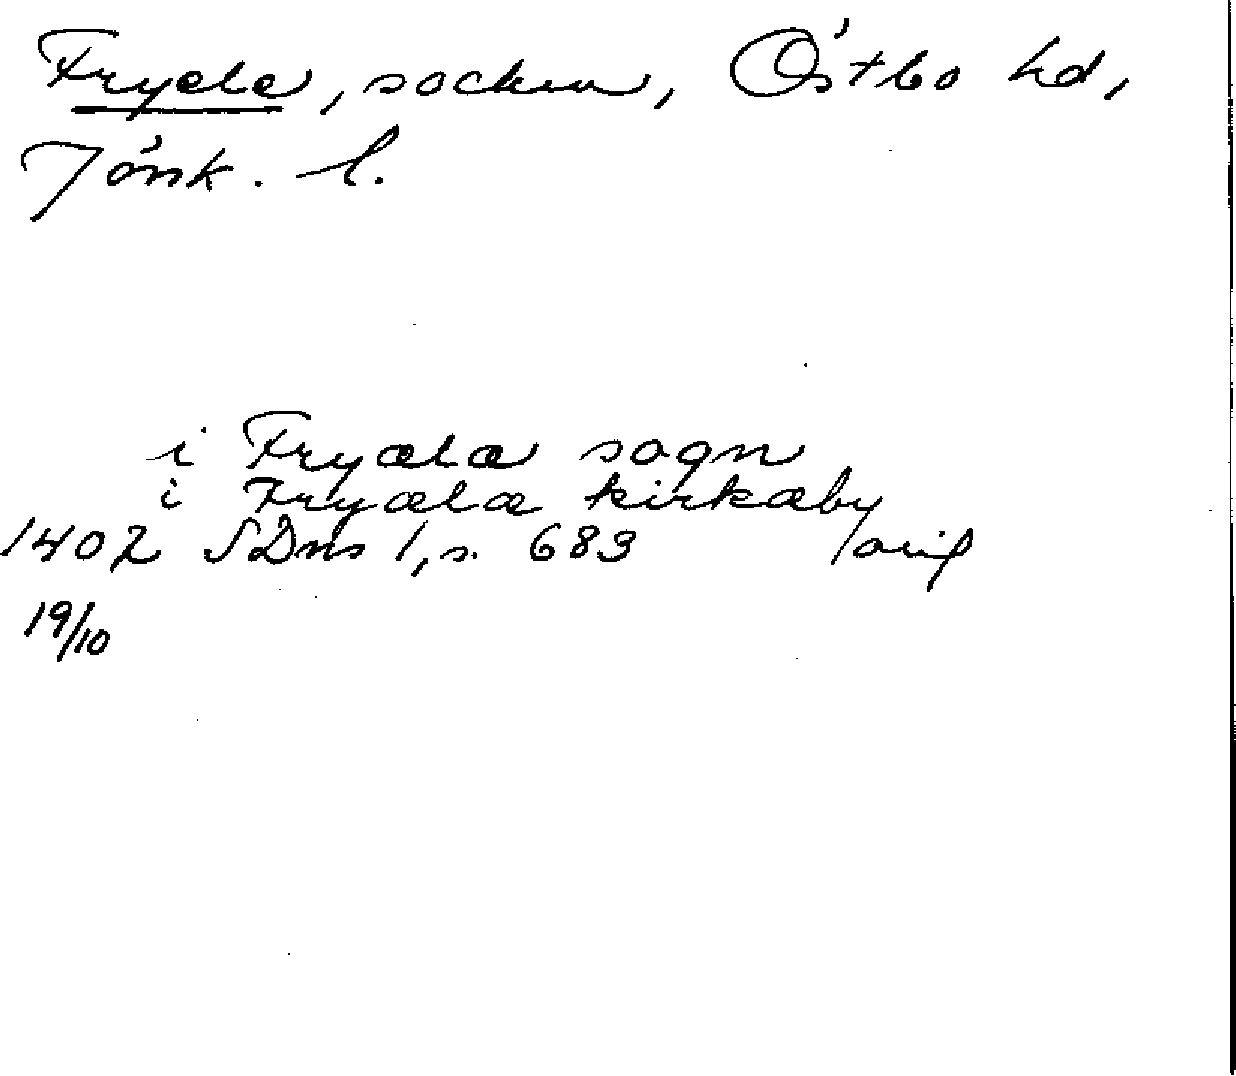 Fryele, socken, Östbo hd,
Jönk. l.
i Fryælæ sogn
i Fryælæ kirkæby
1402 SDns 1, s. 683 /orig
19/10